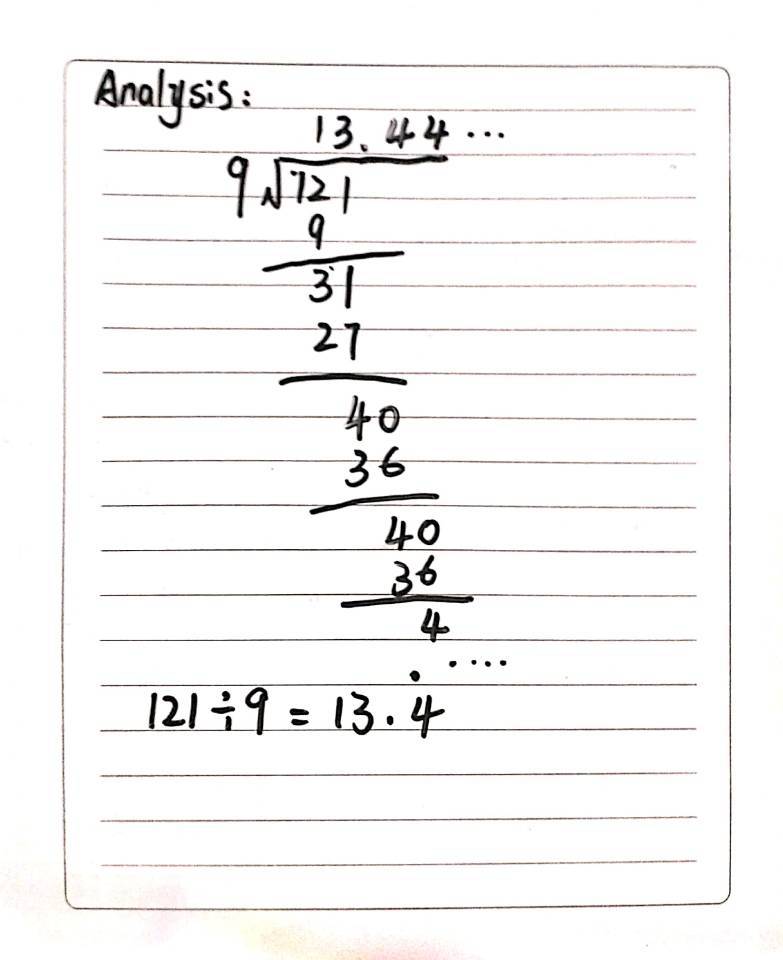 Analysis:
13.44...
9√121
9
31
27
40
36
40
36
4
....
121÷9=13.4̇